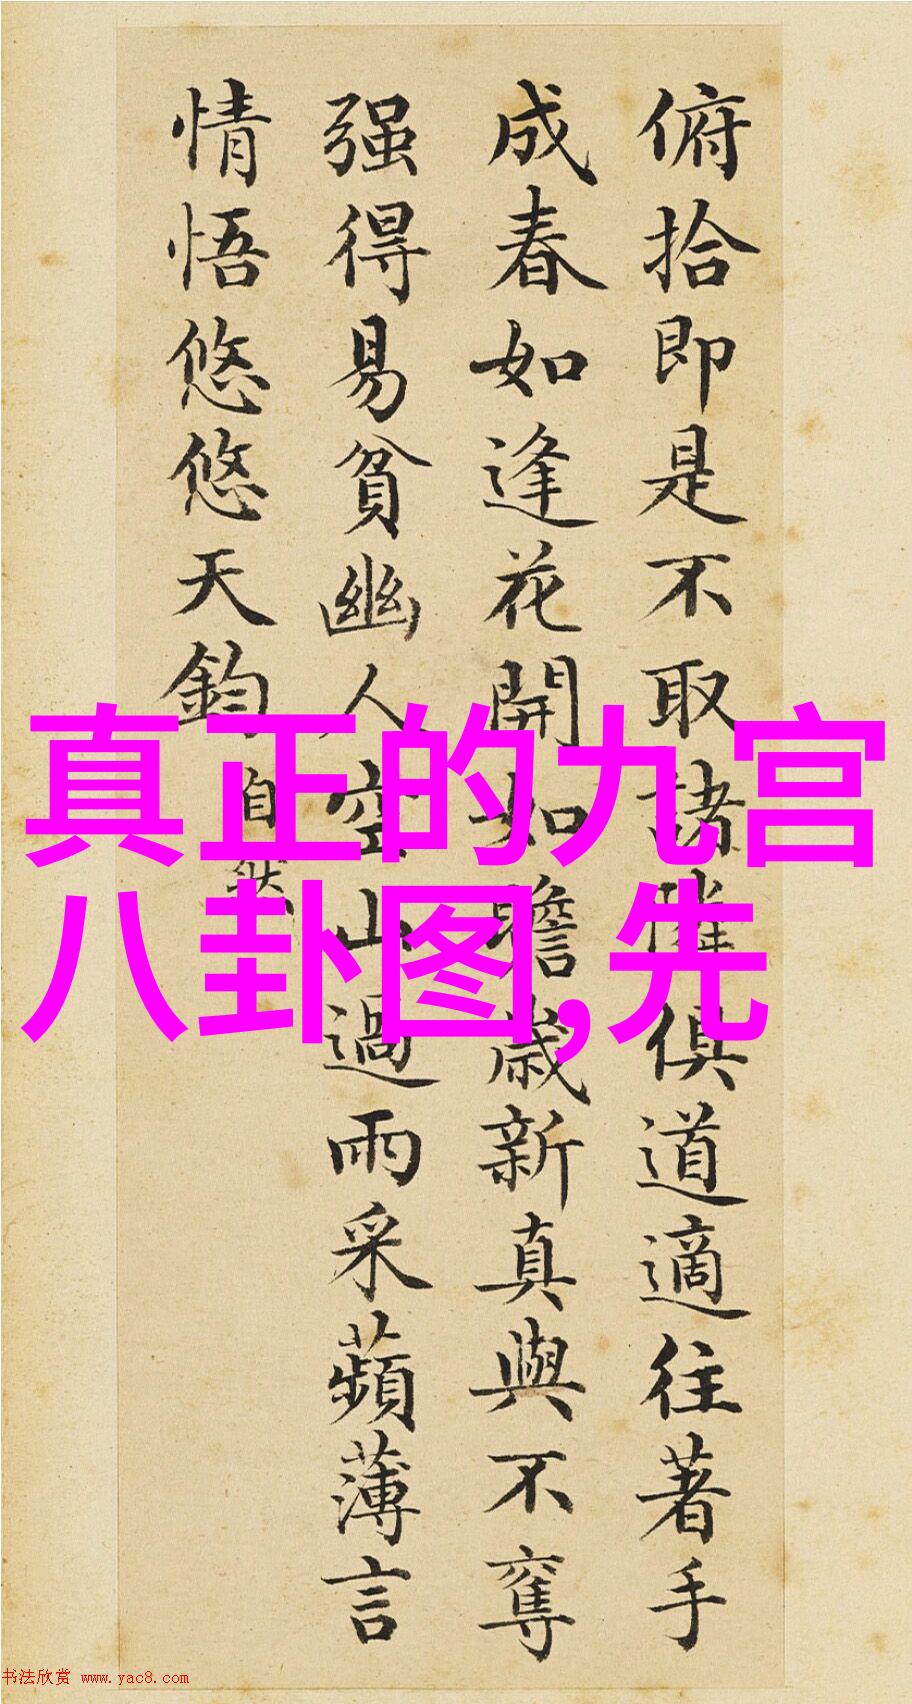 俯拾即是不取諸隣俱道適往著手
成春如逢花開如瞻歲新真與不奪
强得易貧幽人空山過雨采蘋薄言
情悟悠悠天鈞
自然
真正的九宫
八卦图,先
书法欣赏 www.yac8.com